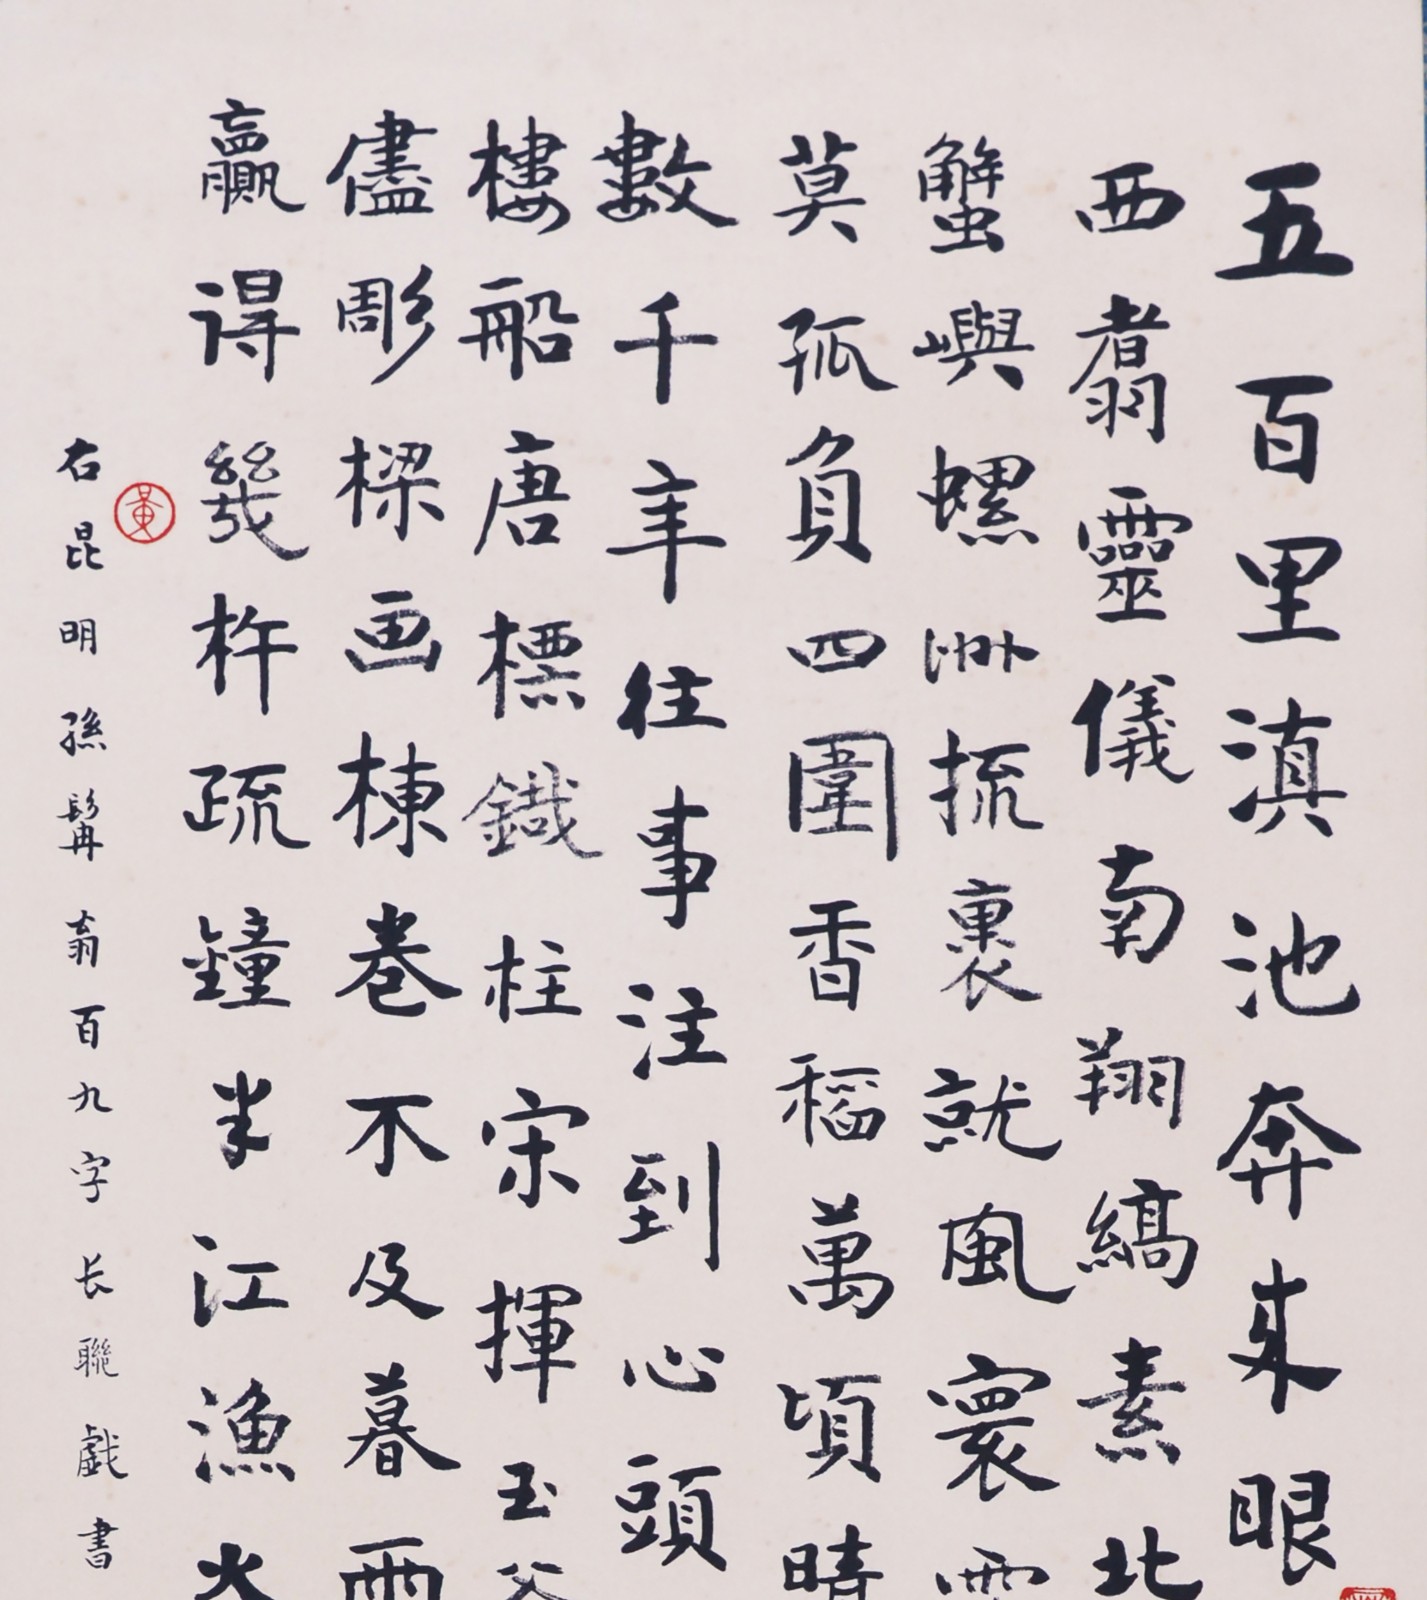 五百里滇池奔来眼
西翥靈儀南翔縞素北
蟹嶼螺洲梳裹就風寰
莫孤負四圍香稻萬頃晴
數千年往事注到心頭
樓船唐標鐵柱宋揮玉
儘彫樑画棟卷不及暮雨
贏得幾杵疏鐘半江漁火
右昆明孫髯翁百九字长聯戯書
黃